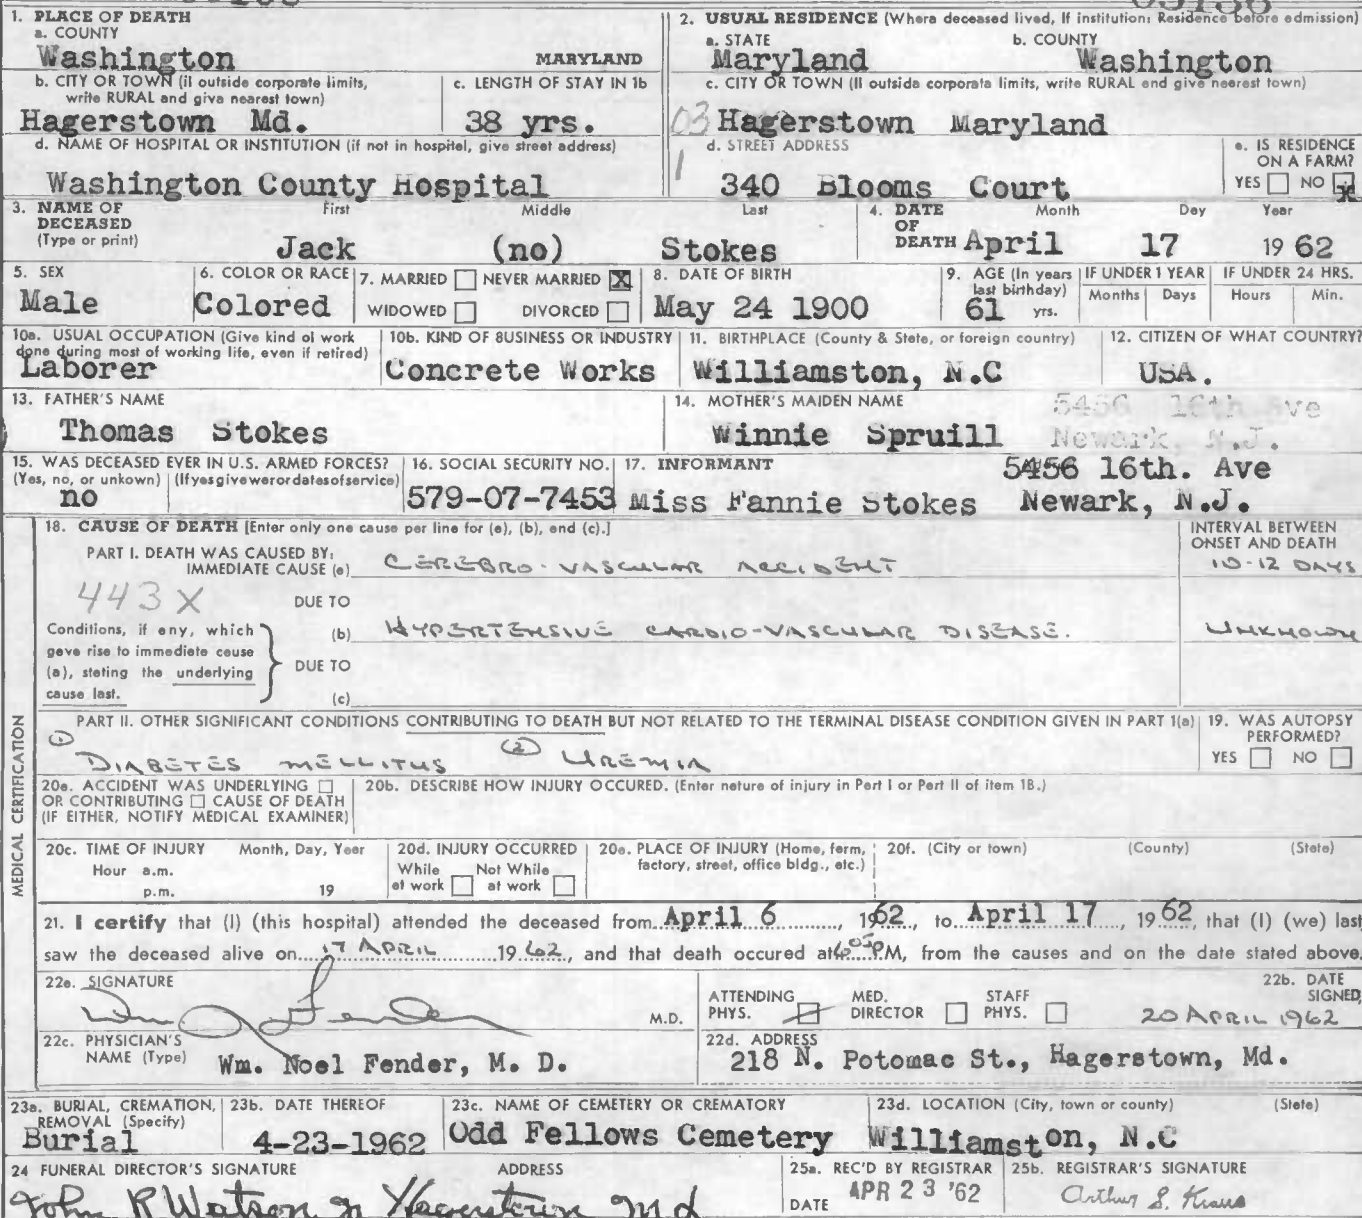 1. PLACE OF DEATH
a. COUNTY
Washington MARYLAND
2. USUAL RESIDENCE (Where deceased lived, If institution: Residence before admission)
a. STATE b. COUNTY
Maryland Washington
b. CITY OR TOWN (if outside corporate limits, write RURAL and give nearest town)
Hagerstown Md.
c. LENGTH OF STAY IN 1b
38 yrs.
c. CITY OR TOWN (If outside corporate limits, write RURAL and give nearest town)
03 Hagerstown Maryland
d. NAME OF HOSPITAL OR INSTITUTION (if not in hospital, give street address)
Washington County Hospital
d. STREET ADDRESS
1 340 Blooms Court
e. IS RESIDENCE
ON A FARM?
YES NO X
3. NAME OF
DECEASED
(Type or print)
First Middle Last
Jack (no) Stokes
4. DATE
OF
DEATH
Month Day Year
April 17 1962
5. SEX
Male
6. COLOR OR RACE
Colored
7. MARRIED NEVER MARRIED X
WIDOWED DIVORCED
8. DATE OF BIRTH
May 24 1900
9. AGE (In years
last birthday)
61 yrs.
IF UNDER 1 YEAR
Months Days
IF UNDER 24 HRS.
Hours Min.
10a. USUAL OCCUPATION (Give kind of work
done during most of working life, even if retired)
Laborer
10b. KIND OF BUSINESS OR INDUSTRY
Concrete Works
11. BIRTHPLACE (County & State, or foreign country)
Williamston, N.C
12. CITIZEN OF WHAT COUNTRY?
USA.
13. FATHER'S NAME
Thomas Stokes
14. MOTHER'S MAIDEN NAME
Winnie Spruill
5456 16th Ave
Newark, N.J.
15. WAS DECEASED EVER IN U.S. ARMED FORCES?
(Yes, no, or unkown) (Ifyesgivewerordatesofservice)
no
16. SOCIAL SECURITY NO.
579-07-7453
17. INFORMANT
Miss Fannie Stokes
5456 16th. Ave
Newark, N.J.
MEDICAL CERTIFICATION
18. CAUSE OF DEATH [Enter only one cause per line for (a), (b), and (c).]
INTERVAL BETWEEN
ONSET AND DEATH
PART I. DEATH WAS CAUSED BY:
IMMEDIATE CAUSE (a) CEREBRO-VASCULAR ACCIDENT 10-12 DAYS
443X
DUE TO
Conditions, if any, which
gave rise to immediate cause
(a), stating the underlying
cause last.
(b) HYPERTENSIVE CARDIO-VASCULAR DISEASE. UNKNOWN
DUE TO
(c)
PART II. OTHER SIGNIFICANT CONDITIONS CONTRIBUTING TO DEATH BUT NOT RELATED TO THE TERMINAL DISEASE CONDITION GIVEN IN PART 1(a)
① DIABETES MELLITUS ② UREMIA
19. WAS AUTOPSY
PERFORMED?
YES NO
20a. ACCIDENT WAS UNDERLYING
OR CONTRIBUTING CAUSE OF DEATH
(IF EITHER, NOTIFY MEDICAL EXAMINER)
20b. DESCRIBE HOW INJURY OCCURED. (Enter nature of injury in Part I or Part II of item 18.)
20c. TIME OF INJURY Month, Day, Year
Hour a.m.
p.m. 19
20d. INJURY OCCURRED
While Not While
at work at work
20e. PLACE OF INJURY (Home, farm,
factory, street, office bldg., etc.)
20f. (City or town) (County) (State)
21. I certify that (I) (this hospital) attended the deceased from April 6, 1962, to April 17, 1962, that (I) (we) last
saw the deceased alive on 17 APRIL 1962, and that death occured at 6:05 P.M, from the causes and on the date stated above.
22a. SIGNATURE
M.D.
ATTENDING
PHYS.
MED.
DIRECTOR
STAFF
PHYS.
22b. DATE
SIGNED
20 APRIL 1962
22c. PHYSICIAN'S
NAME (Type) Wm. Noel Fender, M. D.
22d. ADDRESS
218 N. Potomac St., Hagerstown, Md.
23a. BURIAL, CREMATION,
REMOVAL (Specify)
Burial
23b. DATE THEREOF
4-23-1962
23c. NAME OF CEMETERY OR CREMATORY
Odd Fellows Cemetery
23d. LOCATION (City, town or county) (State)
Williamston, N.C
24 FUNERAL DIRECTOR'S SIGNATURE ADDRESS
John R Watson Jr Hagerstown Md
25a. REC'D BY REGISTRAR
DATE APR 23 '62
25b. REGISTRAR'S SIGNATURE
Arthur S. Kraus